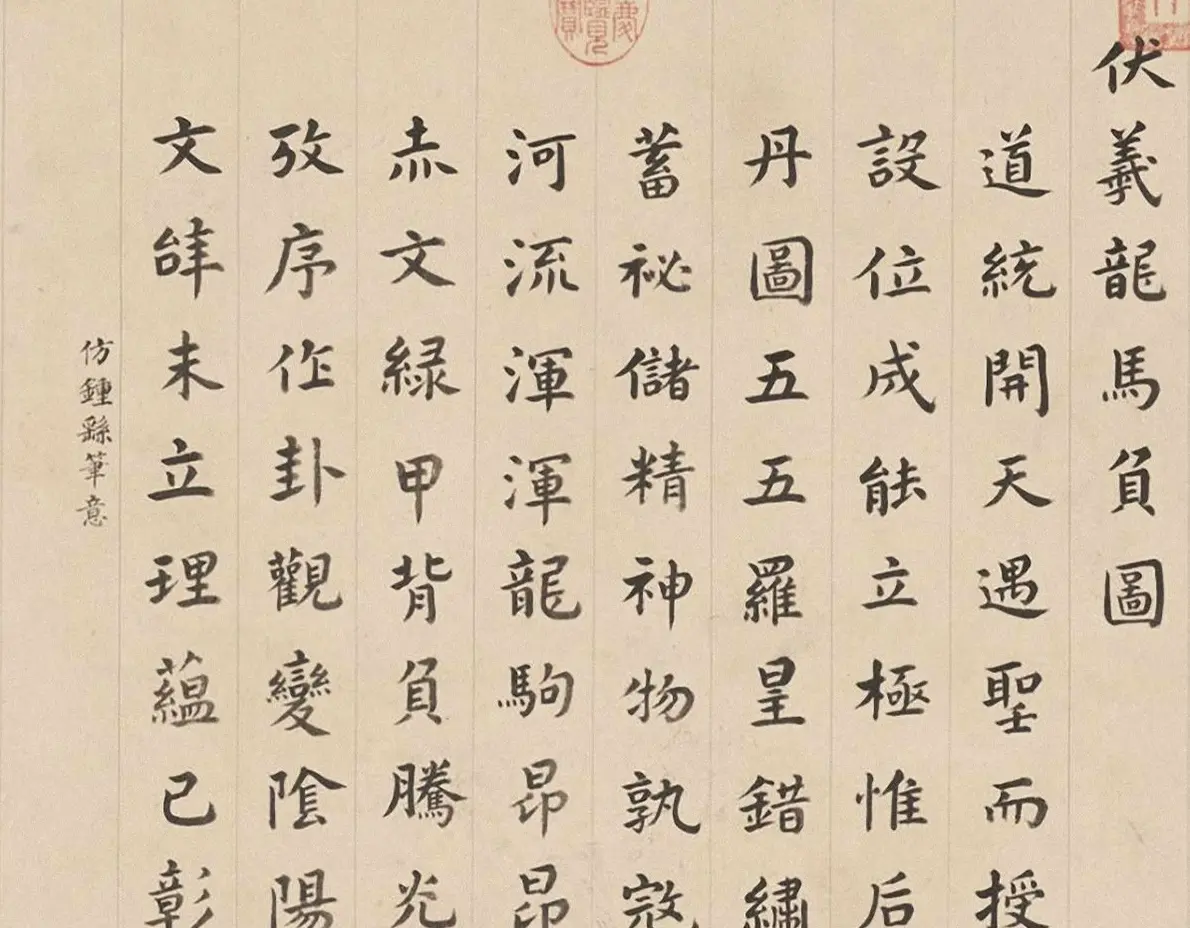 伏羲龍馬負圖
道統開天遇聖而授
設位成能立極惟后
丹圖五五羅星錯繡
蓄祕儲精神物孰
河流渾渾龍駒昂昂
赤文緑甲背負騰光
攷序作卦觀變陰陽
文辝未立理藴已彰
仿鍾繇筆意